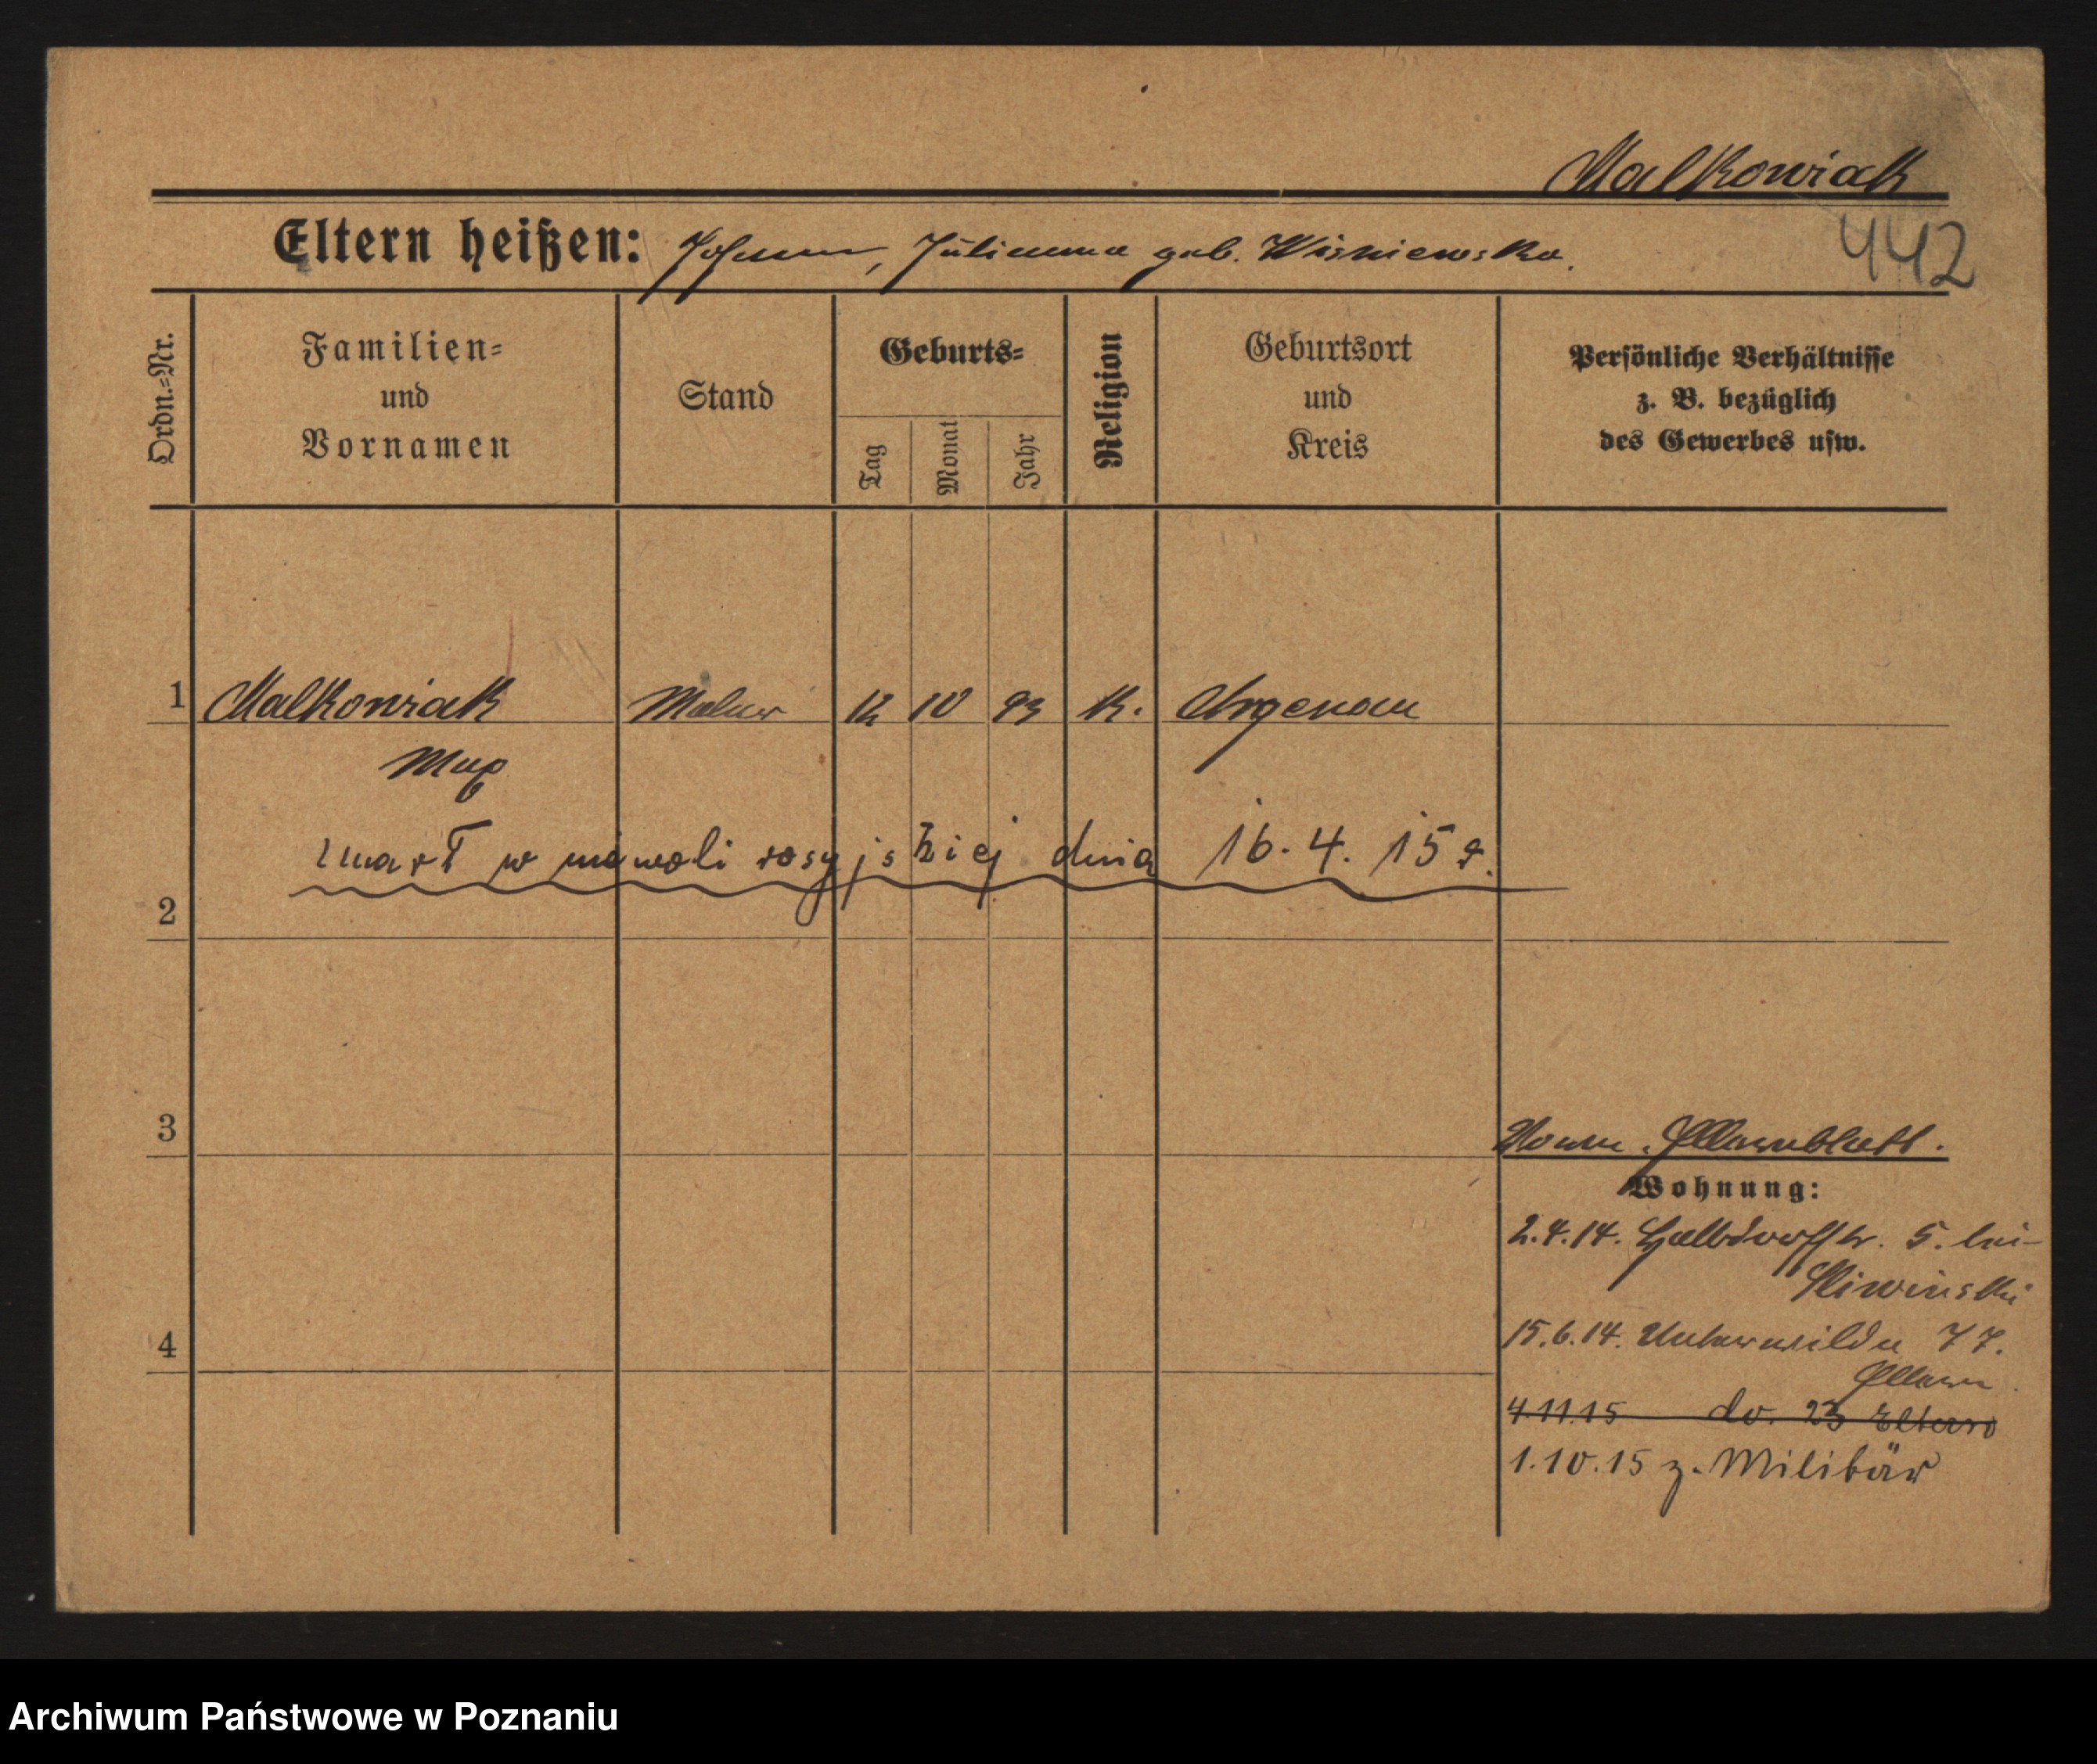 Malkowiak
442
Eltern heißen: Johann, Julianna geb. Wisniewska.
Ordn.=Nr.
Familien=
und
Vornamen
Stand
Geburts=
Tag
Monat
Jahr
Religion
Geburtsort
und
Kreis
Persönliche Verhältnisse
z. B. bezüglich
des Gewerbes usw.
1 Malkowiak Maler 12 10 93 K. Argenau
Max
zmarł w niewoli rosyjskiej dnia 16. 4. 15 r.
2
3
Elternblatt.
Wohnung:
2.4.14. Halbdorfstr. 5. bei
Sliwinski
4
15.6.14. Unterwilda 77.
Eltern
4.11.15 do. 23 Eltern
1.10.15 z. Militär
Archiwum Państwowe w Poznaniu